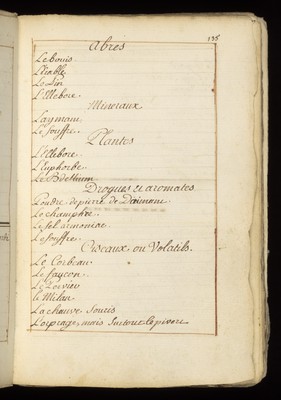 136
Abres
Le Bouis.
L'érable.
Le Pin
L'Illebore.
Mineraux
L'aymant.
Le souffre.
Plantes
L'Ellebore.
L'Euphorbe.
Le Bdellium.
Drogues et aromates.
Poudre de pierre de
Le champhre.
Le sel armoniac
Le souffre.
Oiseaux ou Volatils.
Le Corbeau
Le faucon.
Le Milan
La chauve souris
mais surtout le pivert